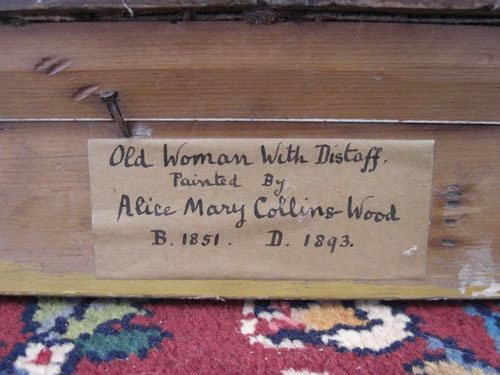 Old Woman With Distaff.
Painted By
Alice Mary Collins Wood
B. 1851. D. 1893.